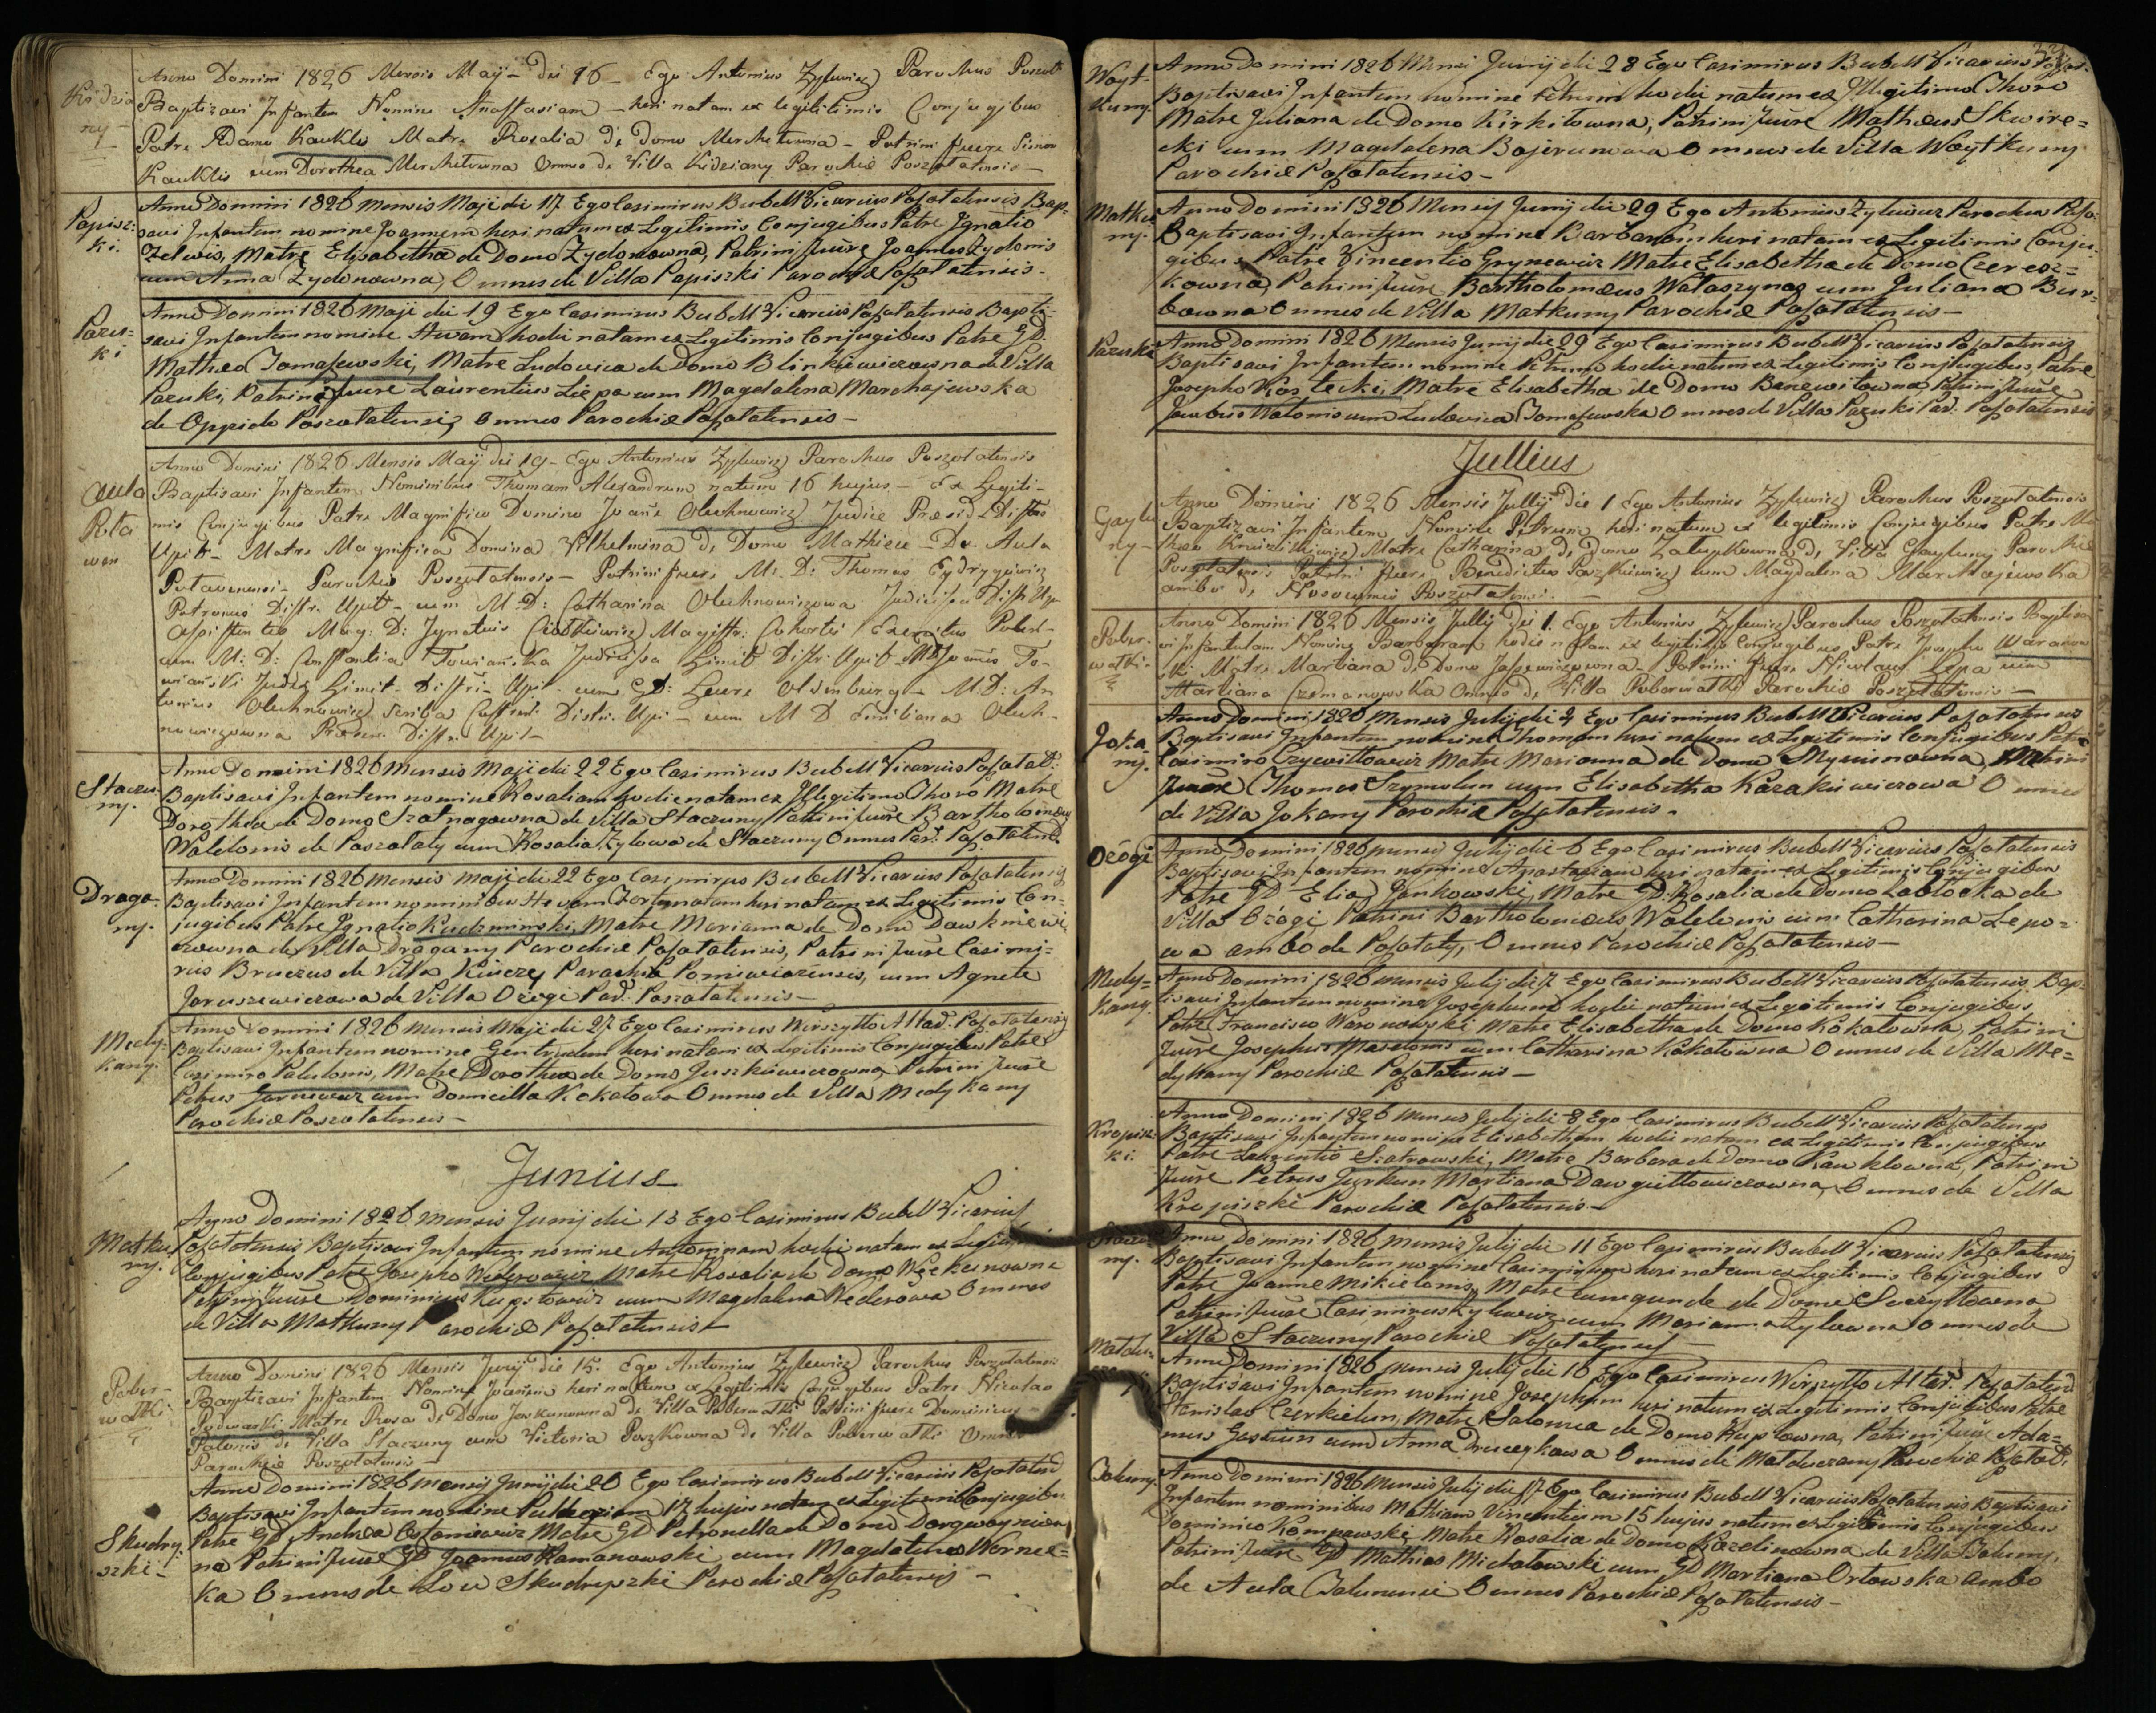 Kidzia
ny
Anno Domini 1826 Mensis Maij die 16 Ego Antonius Zylewicz Parochus Poszołt
Baptizavi Infantem Nomine Anastasiam heri natam ex legitimis Conjugibus
Patre Adamo Kauklis Matre Rosalia de Domo Merkietowna Patrini fuere
Kauklis cum Dorothea Merkietowna Omnes de Villa Kidziany Parochiæ Poszołatensis
Papisz-
ki.
Anno Domini 1826 Mensis Maji die 17 Ego Casimirus Bubell Vicarius Posołatensis Bap-
savi Infantem nomine Joannem heri natum ex Legitimis Conjugibus Patre Ignatio
Zelwis, Matre Elisabetha de Domo Zydonowna, Patrini fuere Joannes Zydonis
cum Anna Zydonowna, Omnes de Villa Papiszki Parochiæ Posołatensis.
Pazu-
ki
Anno Domini 1826 Maji die 19 Ego Casimirus Bubell Vicarius Posołatensis Bapti-
savi Infantem nomine hodie natam ex Legitimis Conjugibus Patre GD
Matheo Tomaszewski, Matre Ludovica de Domo Blinkiewiczowna de Villa
Pazuki, Patrini fuere Laurentius Liepa cum Magdalena Marchajewska
de Oppido Poszołatensi, Omnes Parochiæ Posołatensis
Aula
Pota
wen
Anno Domini 1826 Mensis Maij die 19 Ego Antonius Zylewicz Parochus Poszołatensis
Baptisavi Infantem Nominibus Thomam Alexandrum natum 16 hujus Ex Legiti-
mis Conjugibus Patre Magnifico Domino Joañe Olechnowicz Judice Præsid Distr
Upit Matre Magnifica Domina Vilhelmina de Domo Mathiew De Aula
Potawenensi Parochiæ Poszołatensis Patrini fuere M: D: Thomas Eydrygiewicz
Patronus Distr: Upit cum M: D: Catharina Olechnowiczowa Judicissa Distr Upi
Assistentes Mag: D: Ignatius Ciatkiewicz Magistr: Cohortis Exercitus
cum M: D: Constantia Towiańska Judicissa Limit Distr: Upit M D Joañes To-
wiański Judex Limit Distri Upit cum GD: Oldenburg M: D: An
tonius Olechnowicz Scriba Distri: Upi cum M D Emiliana Olech-
nowiczowna Distr: Upit
Staczu-
ny.
Anno Domini 1826 Mensis Maji die 22 Ego Casimirus Bubell Vicarius Posołat:
Baptisavi Infantem nomine Rosaliam hodie natam ex Illegitimo Thoro Matre
Dorothea de Domo Szatnagowna de Villa Staczuny Patrini fuere Bartholomæus
Walelomis de Paszołaty cum Rosalia Zylowa de Staczuny Omnes Par: Posołatensis
Draga-
ny.
Anno Domini 1826 Mensis Maji die 22 Ego Casimirus Bubell Vicarius Posołatensis
Baptisavi Infantem nominibus heri natam ex Legitimis Con-
jugibus Patre Ignatio Kudzminski, Matre Marianna de Domo Dawkniewi-
czowna de Villa Dragany Parochiæ Posołatensis, Patrini fuere Casimi-
rus Bruczus de Villa Kiuczey Parochiæ Poniewiezensis, cum Agnete
Jaruszewiczowa de Villa Ożogi Par: Poszołatensis
Medy-
kany.
Anno Domini 1826 Mensis Maji die 27 Ego Casimirus Wirszytto Altar: Posołatensis
Baptisavi Infantem nomine Gertrudem heri natam ex Legitimis Conjugibus Patre
Casimiro Palulonis, Matre Dorothea de Domo Juszkiewiczowna Patrini fuere
Petrus cum Domicilla Kokatowa Omnes de Villa Medykany
Parochiæ Poszołatensis
Junius
Matku
ny.
Anno Domini 1826 Mensis Junij die 13 Ego Casimirus Bubell Vicarius
Posołatensis Baptisavi Infantem nomine Antoninam hodie natam ex Legitimis
Conjugibus Patre Josepho Wederowicz Matre Rosalia de Domo
Patrini fuere Dominicus Kupstowicz cum Magdalena Wederowa Omnes
de Villa Matkuny Parochiæ Posołatensis
Pober-
watki
Anno Domini 1826 Mensis Junij die 15. Ego Antonius Zylewicz Parochus Poszołatensis
Baptizavi Infantem Nomine Joañem heri natum ex Legitimis Conjugibus Patre Nicolao
Matre Rosa de Domo Jankunowna de Villa Poberwatki Patrini fuere Dominicus
Patonis de Villa Staczuny cum Victoria Poszkowna de Villa Poberwatki Omnes
Parochiæ Poszołatensis
Skudry-
szki
Anno Domini 1826 Mensis Junij die 20 Ego Casimirus Bubell Vicarius Posołatens
Baptisavi Infantem nomine Pulcheriam 17 hujus natam ex Legitimis Conjugibus
Patre GD Andrea Matre GD Petronella de Domo
na Patrini fuere GD Joannes Ramanowski cum Magdalena Wernic-
ka Omnes de Loco Skudryszki Parochiæ Posołatensis
Woyt-
kuny.
Anno Domini 1826 Mensi Junij die 28 Ego Casimirus Bubell Vicarius
Baptisavi Infantem nomine Petrum hodie natum ex Illegitimo Thoro
Matre Juliana de Domo Kirkitowna, Patrini fuere Mathæus Skwire-
cki cum Magdalena Bojarunowa Omnes de Villa Woytkuny
Parochiæ Posołatensis
Matku
ny.
Anno Domini 1826 Mensis Junij die 29 Ego Antonius Zylewicz Parochus Poso-
Baptisavi Infantem nomine Barbaram heri natam ex Legitimis Conju-
gibus Patre Vincentio Grynewicz Matre Elisabetha de Domo Czeresz-
kowna, Patrini fuere Bartholomæus Wataszynas cum Juliana Bur-
bowna Omnes de Villa Matkuny Parochiæ Posołatensis
Pazuki
Anno Domini 1826 Mensis Junij die 29 Ego Casimirus Bubell Vicarius Posołatensis
Baptisavi Infantem nomine Petrum hodie natum ex Legitimis Conjugibus, Patre
Josepho Kostecki, Matre Elisabetha de Domo Banewitowna Patrini fuere
Jacobus Watonis cum Ludovica Tomaszewska Omnes de Villa Pazuki Par: Posołatensis
Jullius
Gaylu
ny
Anno Domini 1826 Mensis Jullij die 1 Ego Antonius Zylewicz Parochus Poszołatensis
Baptizavi Infantem Nomine Petrum heri natum ex legitimis Conjugibus Patre Ma
theo Matre Catharina de Domo de Villa Gayluny Parochiæ
Poszołatensis Patrini fuere Benedictus Paszkiewicz cum Magdalena Marchajewska
ambo de Nosocomio Poszołatensi.
Pober-
watki
Anno Domini 1826 Mensis Jullij die 1. Ego Antonius Zylewicz Parochus Poszołatensis Baptisa
vi Infantulam Nomine Barbaram hodie natam ex legitimis Conjugibus Patre Josepho Waranow
ski Matre Martiana de Domo Jasewiczowna Patrini fuere Nicolaus Lepa cum
Martiana Czemanowska Omnes de Villa Poberwatki Parochiæ Poszołatensis
Joka
ny.
Anno Domini 1826 Mensis Julij die 2 Ego Casimirus Bubell Vicarius Posołatensis
Baptisavi Infantem nomine Thomam heri natum ex Legitimis Conjugibus Patre
Casimiro Czywittowicz Matre Marianna de Domo Patrini
fuere Thomas Szymulun cum Elisabetha Karakiewiczowa Omnes
de Villa Jokany Parochiæ Posołatensis.
Ożogi
Anno Domini 1826 Mensis Julij die 6 Ego Casimirus Bubell Vicarius Posołatensis
Baptisavi Infantem nomine Anastasiam heri natam ex Legitimis Conjugibus
Patre GD Elia Jankowski, Matre GD Rosalia de Domo Zabłocka de
Villa Ożogi Patrini Bartholomæus Walelonis cum Catharina Lepo-
wa ambo de Posołaty, Omnes Parochiæ Posołatensis
Medy-
kany.
Anno Domini 1826 Mensis Julij die 7 Ego Casimirus Bubell Vicarius Posołatensis, Bap-
tisavi Infantem nomine Josephum hodie natum ex Legitimis Conjugibus
Patre Francisco Waronowski Matre Elisabetha de Domo Kokatowna, Patrini
fuere Josephus Masetonis cum Catharina Kokatowna Omnes de Villa Me-
dykany Parochiæ Posołatensis
Kropisz-
ki.
Anno Domini 1826 Mensis Julij die 8 Ego Casimirus Bubell Vicarius Posołatensis
Baptisavi Infantem nomine Elisabetham hodie natam ex Legitimis Conjugibus
Patre Laurentio Szatrowski, Matre Barbara de Domo Kauklowna, Patrini
fuere Petrus Jurkun Martiana Dawgiettowiczowna, Omnes de Villa
Kropiszki Parochiæ Posołatensis
Staczu
ny.
Anno Domini 1826 Mensis Julij die 11 Ego Casimirus Bubell Vicarius Posołatensis
Baptisavi Infantem nomine Casimirum heri natum ex Legitimis Conjugibus
Patre Joanne Mikielonis, Matre Cunegunde de Domo
Patrini fuere Casimirus Zylewicz cum Marianna Zylowna Omnes de
Villa Staczuny Parochiæ Posołatensis
Matdu-
Anno Domini 1826 Mensis Julij die 16 Ego Casimirus Wirszytto Altar: Posołatens
Baptisavi Infantem nomine Josephum heri natum ex Legitimis Conjugibus Patre
Stanislao Czerkielun, Matre Salomea de Domo Kupsowna, Patrini fuere Ada-
mus Gasiun cum Anna Omnes de Matduczany Parochiæ Posołat:
Baluny.
Anno Domini 1826 Mensis Julij die 17 Ego Casimirus Bubell Vicarius Posołatensis Baptisavi
Infantem nominibus Mathiam Vincentium 15 hujus natum ex Legitimis Conjugibus
Dominico Kompowski Matre Rosalia de Domo de Villa Baluny,
Patrini fuere GD Mathias Michałowski cum GD Martiana Orłowska ambo
de Aula Balunensi Omnes Parochiæ Posołatensis